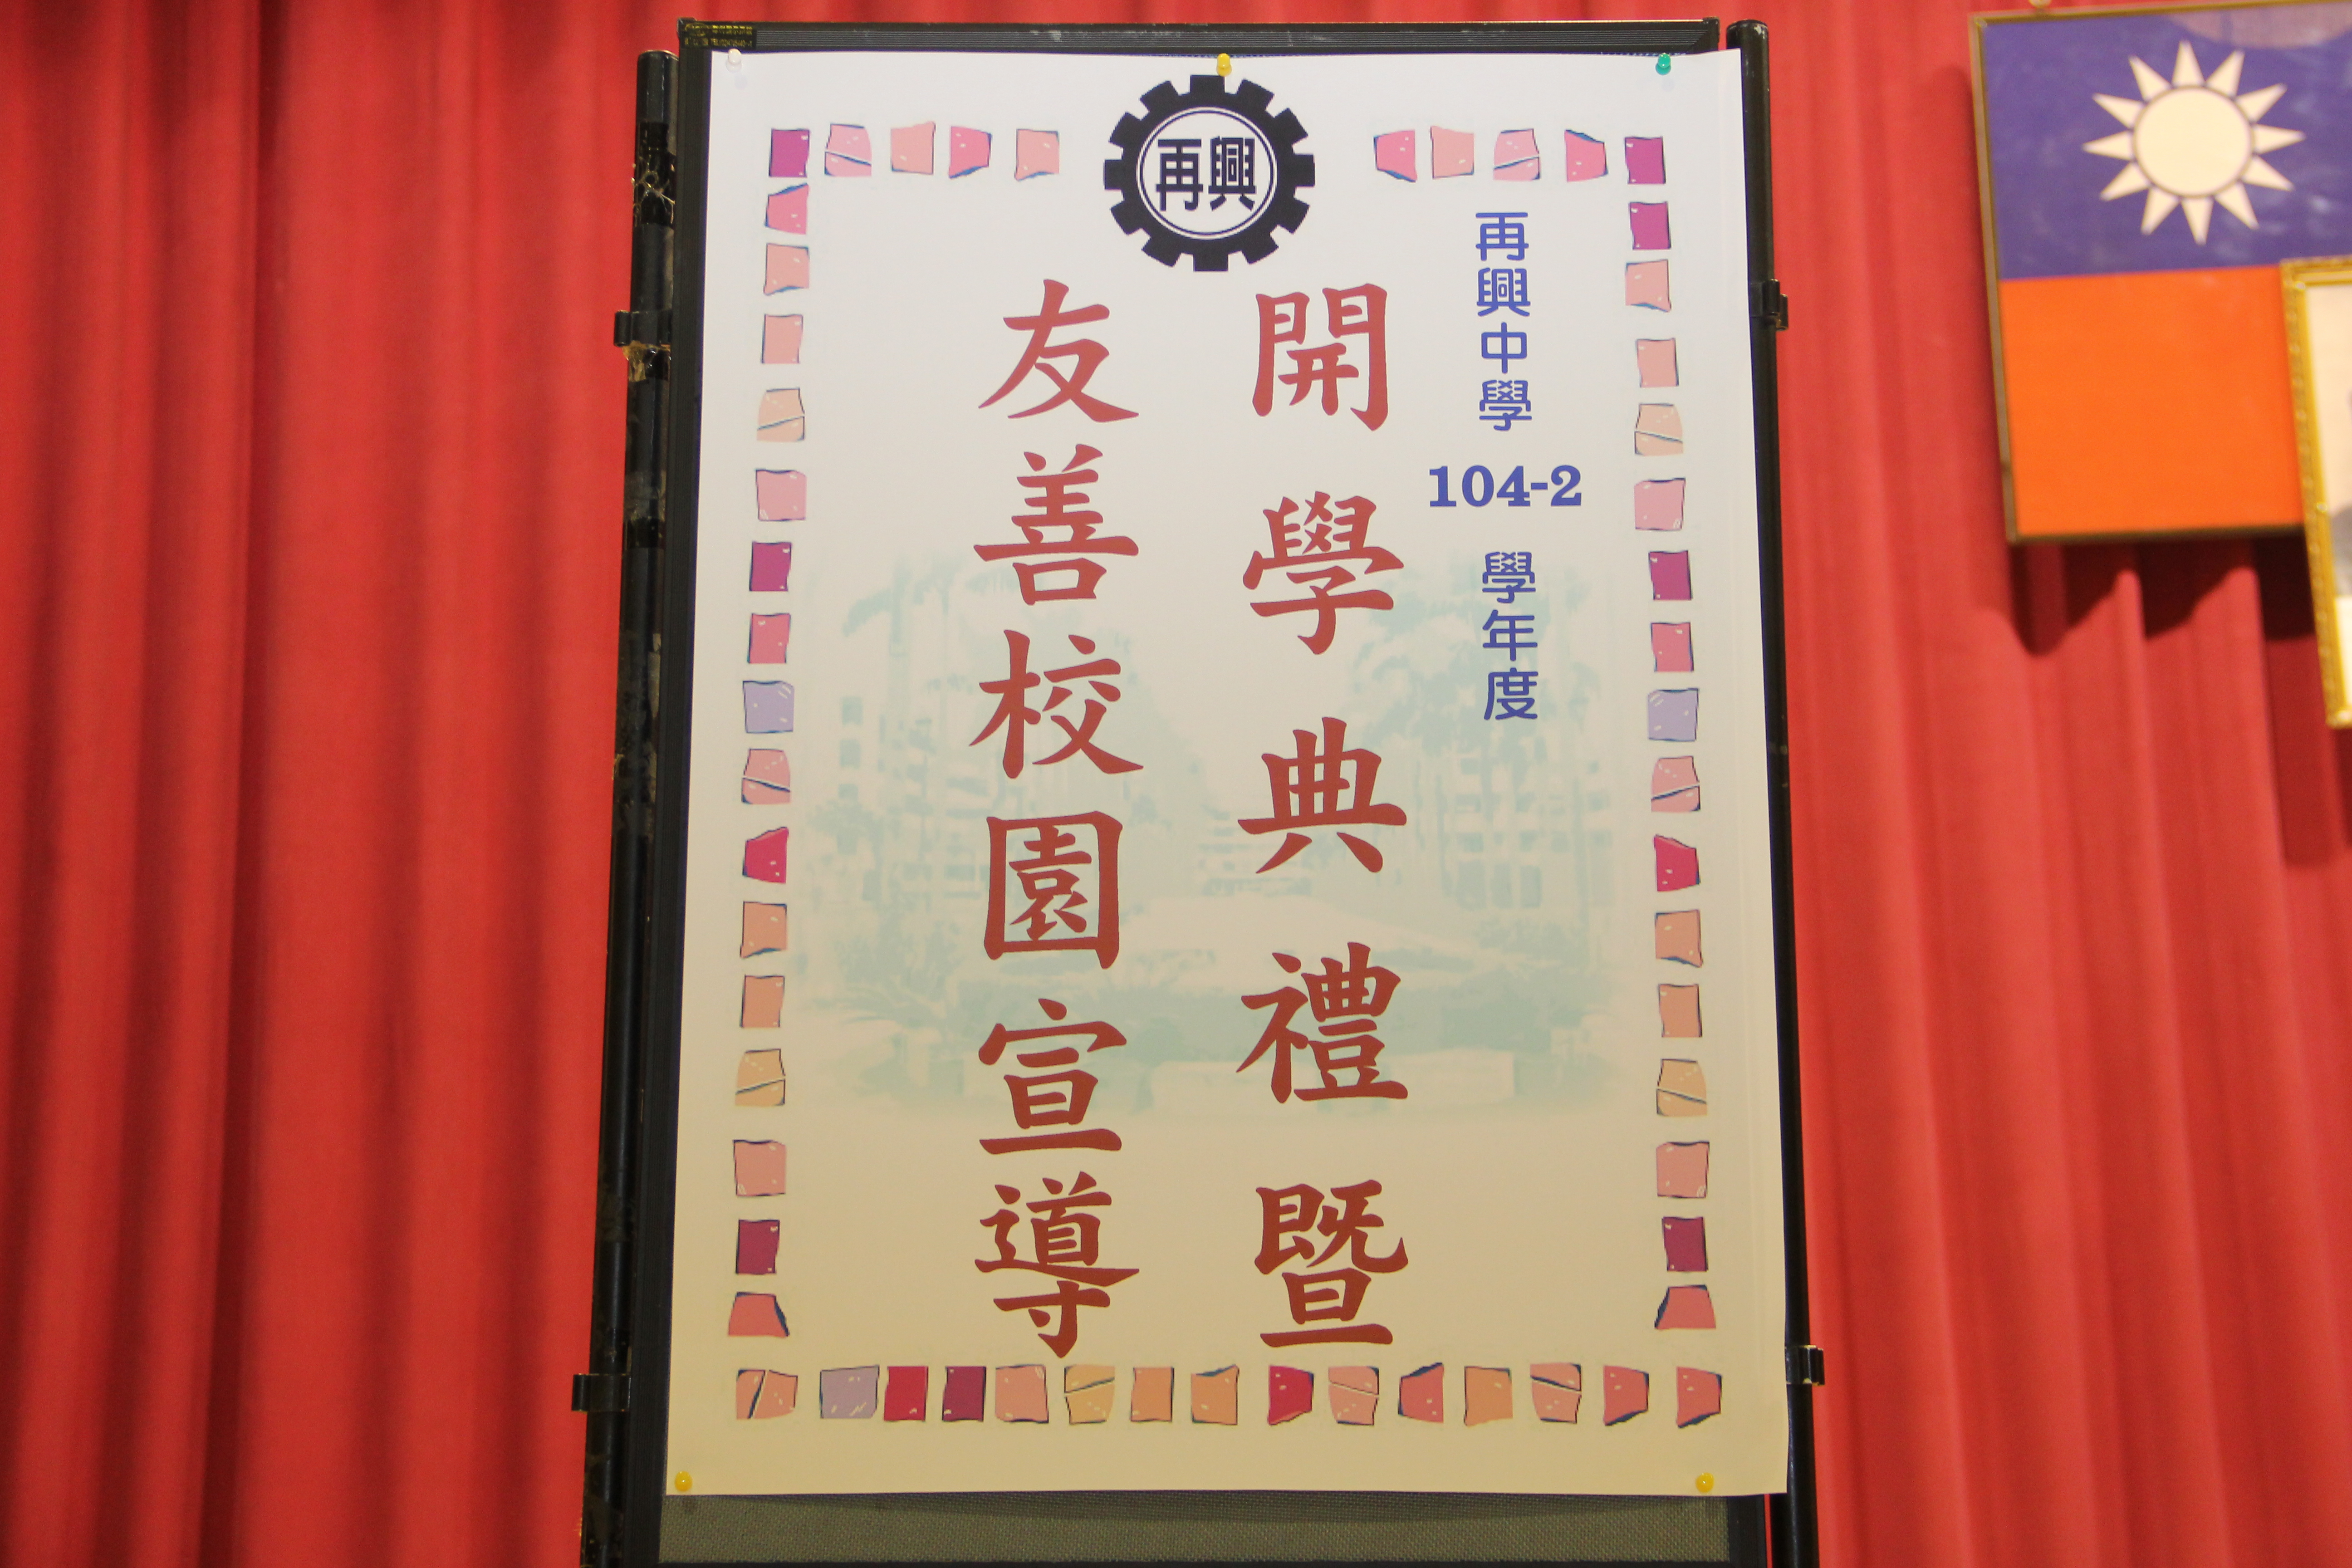 再興
再興中學 104-2 學年度
開學典禮暨
友善校園宣導